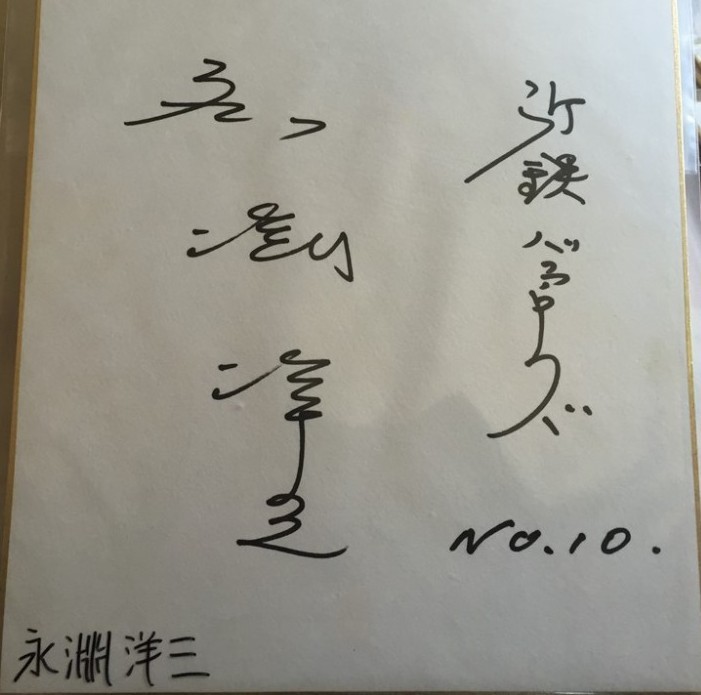 近鉄バファローズ
No.10.
永淵洋三
永淵洋三